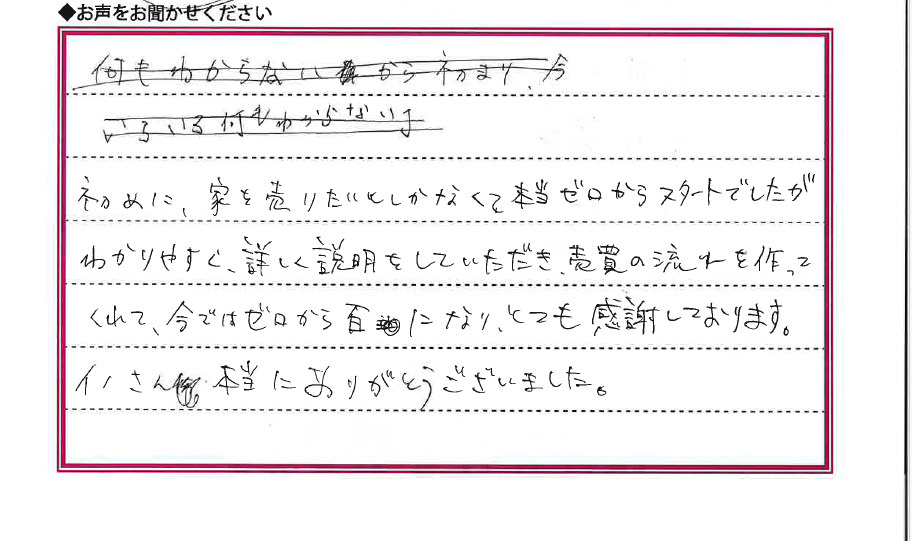 ◆お声をお聞かせください
何もわからないからネカまり、今
いろいろ何もわからない」
初めに、家を売りたいとしかなくて本当ゼロからスタートでしたが
わかりやすく、詳しく説明をしていただき、売買の流れを作って
くれて、今ではゼロから百になり、とても感謝しております。
イノさん 本当にありがとうございました。